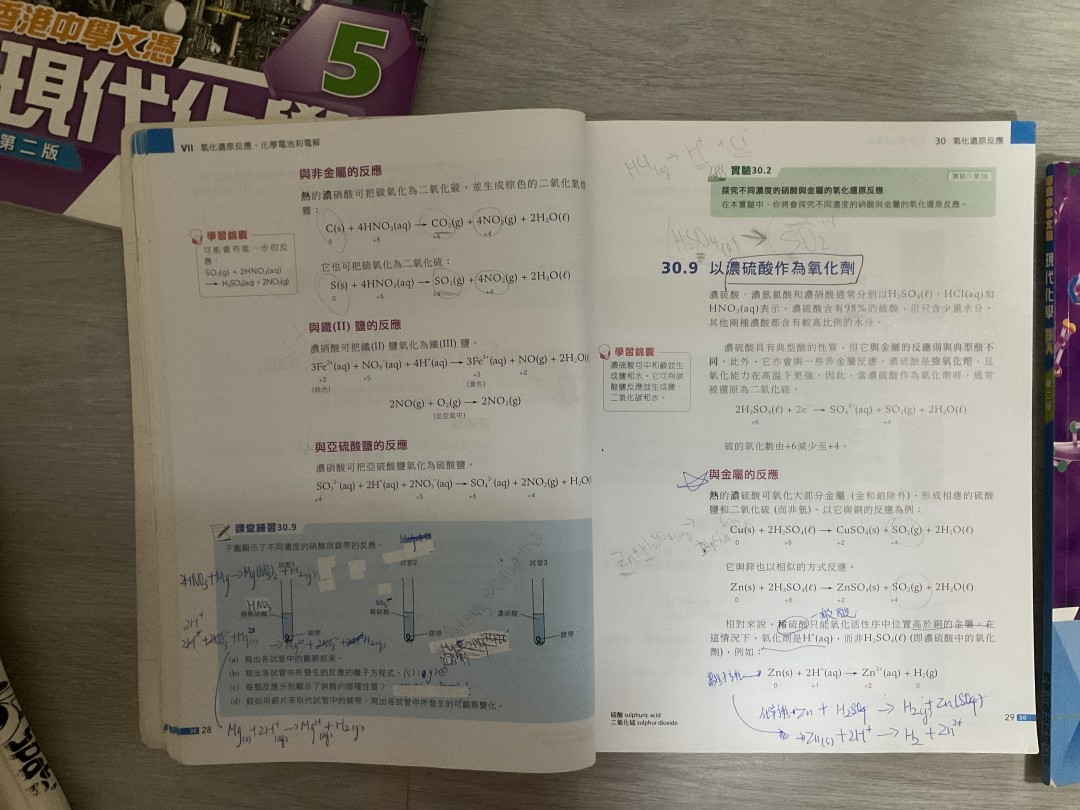 香港中學文憑
現代化學
5
第二版
VII 氧化還原反應、化學電池和電解
與非金屬的反應
熱的濃硝酸可把碳氧化為二氧化碳，並生成棕色的二氧化氮
：
C(s) + 4HNO₃(aq) → CO₂(g) + 4NO₂(g) + 2H₂O(ℓ)
0 +5 +4 +4
它也可把硫氧化為二氧化硫：
S(s) + 4HNO₃(aq) → SO₂(g) + 4NO₂(g) + 2H₂O(ℓ)
0 +5 +4 +4
學習錦囊
可能會有進一步的反
應：
SO₂(g) + 2HNO₃(aq)
→ H₂SO₄(aq) + 2NO₂(g)
與鐵(II) 鹽的反應
濃硝酸可把鐵(II) 鹽氧化為鐵(III) 鹽。
3Fe²⁺(aq) + NO₃⁻(aq) + 4H⁺(aq) → 3Fe³⁺(aq) + NO(g) + 2H₂O(
+2 +5 +3 +2
(綠色) (黃色)
2NO(g) + O₂(g) → 2NO₂(g)
(從空氣中)
與亞硫酸鹽的反應
濃硝酸可把亞硫酸鹽氧化為硫酸鹽。
SO₃²⁻(aq) + 2H⁺(aq) + 2NO₃⁻(aq) → SO₄²⁻(aq) + 2NO₂(g) + H₂O(
+4 +5 +6 +4
課堂練習30.9
下圖顯示了不同濃度的硝酸與鎂帶的反應。
試管1 試管2 試管3
2HNO₃ + Mg → Mg(NO₃)₂ + H₂(g)
HNO₃
NO₃⁻
稀硝酸
濃硝酸
鎂帶 鎂帶 鎂帶
2H⁺
(a) 寫出各試管中的觀察結果。
(b) 寫出各試管中所發生的反應的離子方程式。
(c) 每個反應分別顯示了硝酸的哪種性質？
(d) 假如用銅片來取代試管中的鎂帶，寫出各試管中所發生的可觀察變化。
Mg(s) + 2H⁺(aq) → Mg²⁺(aq) + H₂(g)
30 28
30 氧化還原反應
HCl(aq) → H⁺ + Cl⁻
實驗30.2
實驗作業30
探究不同濃度的硝酸與金屬的氧化還原反應
在本實驗中，你將會探究不同濃度的硝酸與金屬的氧化還原反應。
30.9 以濃硫酸作為氧化劑
濃硫酸、濃氫氯酸和濃硝酸通常分別以H₂SO₄(ℓ)、HCl(aq)和
HNO₃(aq)表示。濃硫酸含有98%的硫酸，但只含少量水分。
其他兩種濃酸都含有較高比例的水分。
濃硫酸具有典型酸的性質，但它與金屬的反應則與典型酸不
同。此外，它亦會與一些非金屬反應。濃硫酸是強氧化劑，且
氧化能力在高溫下更強。因此，當濃硫酸作為氧化劑時，通常
被還原為二氧化硫。
學習錦囊
濃硫酸可中和鹼並生
成鹽和水。它可與碳
酸鹽反應並生成鹽、
二氧化碳和水。
2H₂SO₄(ℓ) + 2e⁻ → SO₄²⁻(aq) + SO₂(g) + 2H₂O(ℓ)
+6 +4
硫的氧化數由+6減少至+4。
與金屬的反應
熱的濃硫酸可氧化大部分金屬 (金和鉑除外)，形成相應的硫酸
鹽和二氧化硫 (而非氫)。以它與銅的反應為例：
Cu(s) + 2H₂SO₄(ℓ) → CuSO₄(s) + SO₂(g) + 2H₂O(ℓ)
0 +6 +2 +4
它與鋅也以相似的方式反應。
Zn(s) + 2H₂SO₄(ℓ) → ZnSO₄(s) + SO₂(g) + 2H₂O(ℓ)
0 +6 +2 +4
一般酸
相對來說，稀硫酸只能氧化活性序中位置高於銅的金屬。在
這情況下，氧化劑是H⁺(aq)，而非H₂SO₄(ℓ) (即濃硫酸中的氧化
劑)，例如：
Zn(s) + 2H⁺(aq) → Zn²⁺(aq) + H₂(g)
0 +1 +2 0
Zn + H₂SO₄ → H₂(g) + Zn(SO₄)
Zn(s) + 2H⁺ → H₂ + Zn²⁺
硫酸 sulphuric acid
二氧化硫 sulphur dioxide
29 30
現代化學